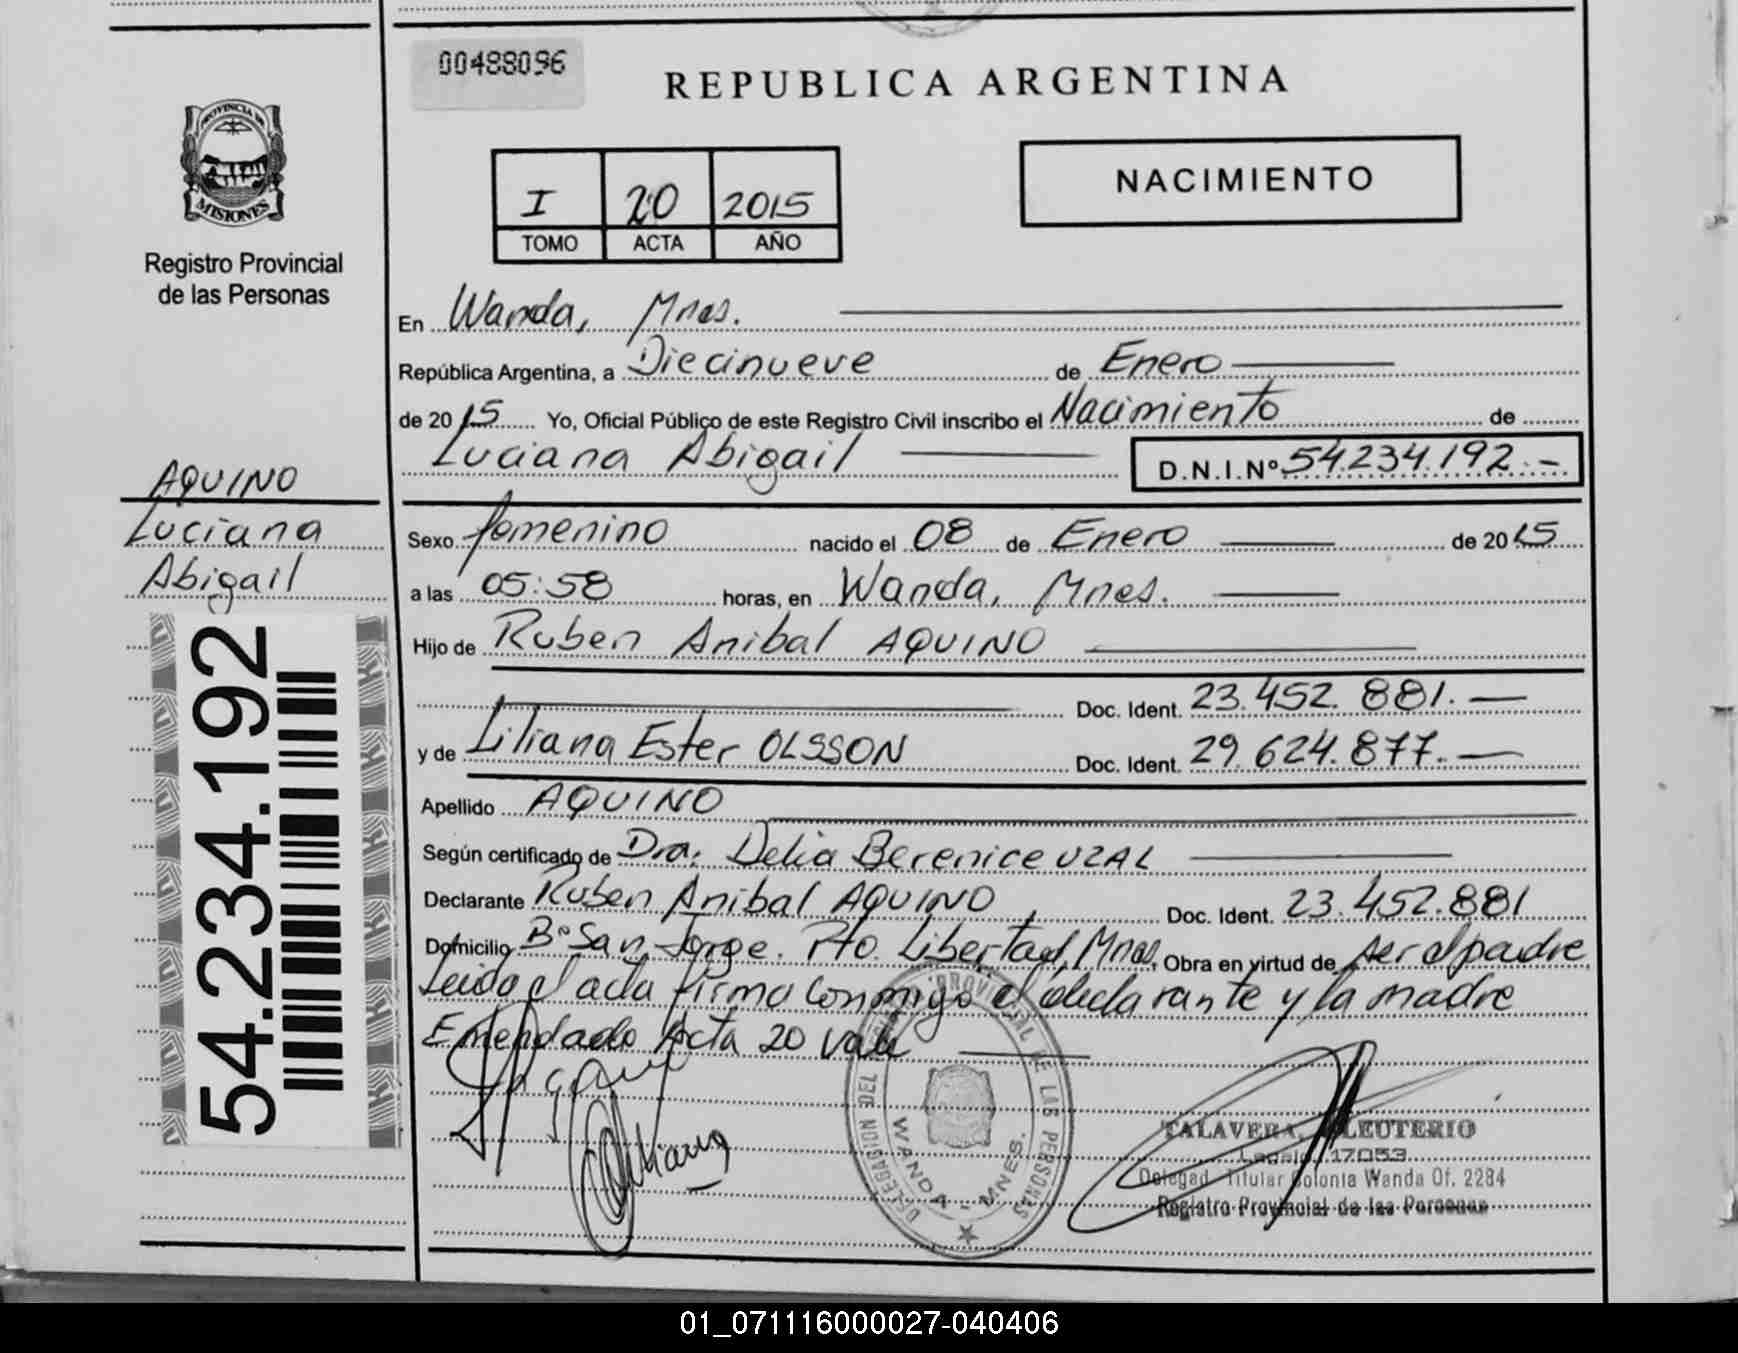 00488096
REPUBLICA ARGENTINA
PROVINCIA DE
MISIONES
Registro Provincial
de las Personas
I 20 2015
TOMO ACTA AÑO
NACIMIENTO
En Wanda, Mnes.
República Argentina, a Diecinueve de Enero
de 2015 Yo, Oficial Público de este Registro Civil inscribo el Nacimiento de
Luciana Abigail D.N.I.Nº 54.234.192.-
AQUINO
Luciana
Abigail
54.234.192
Sexo femenino nacido el 08 de Enero de 2015
a las 05:58 horas, en Wanda, Mnes.
Hijo de Ruben Anibal AQUINO
Doc. Ident. 23.452.881.-
y de Liliana Ester OLSSON Doc. Ident. 29.624.877.-
Apellido AQUINO
Según certificado de Dra. Delia Berenice UZAL
Declarante Ruben Anibal AQUINO, Doc. Ident. 23.452.881
Domicilio Bº San Jorge. Pto. Libertad, Mnes. Obra en virtud de ser el padre
Leida el acta firma conmigo el declarante y la madre
Enmendado Acta 20 vale
Liliana
DELEGACION DEL REGISTRO PROVINCIAL DE LAS PERSONAS
WANDA - MNES.
TALAVERA, ELEUTERIO
Legajo 17053
Delegad Titular Colonia Wanda Of. 2284
Registro Provincial de las Personas
01_071116000027-040406